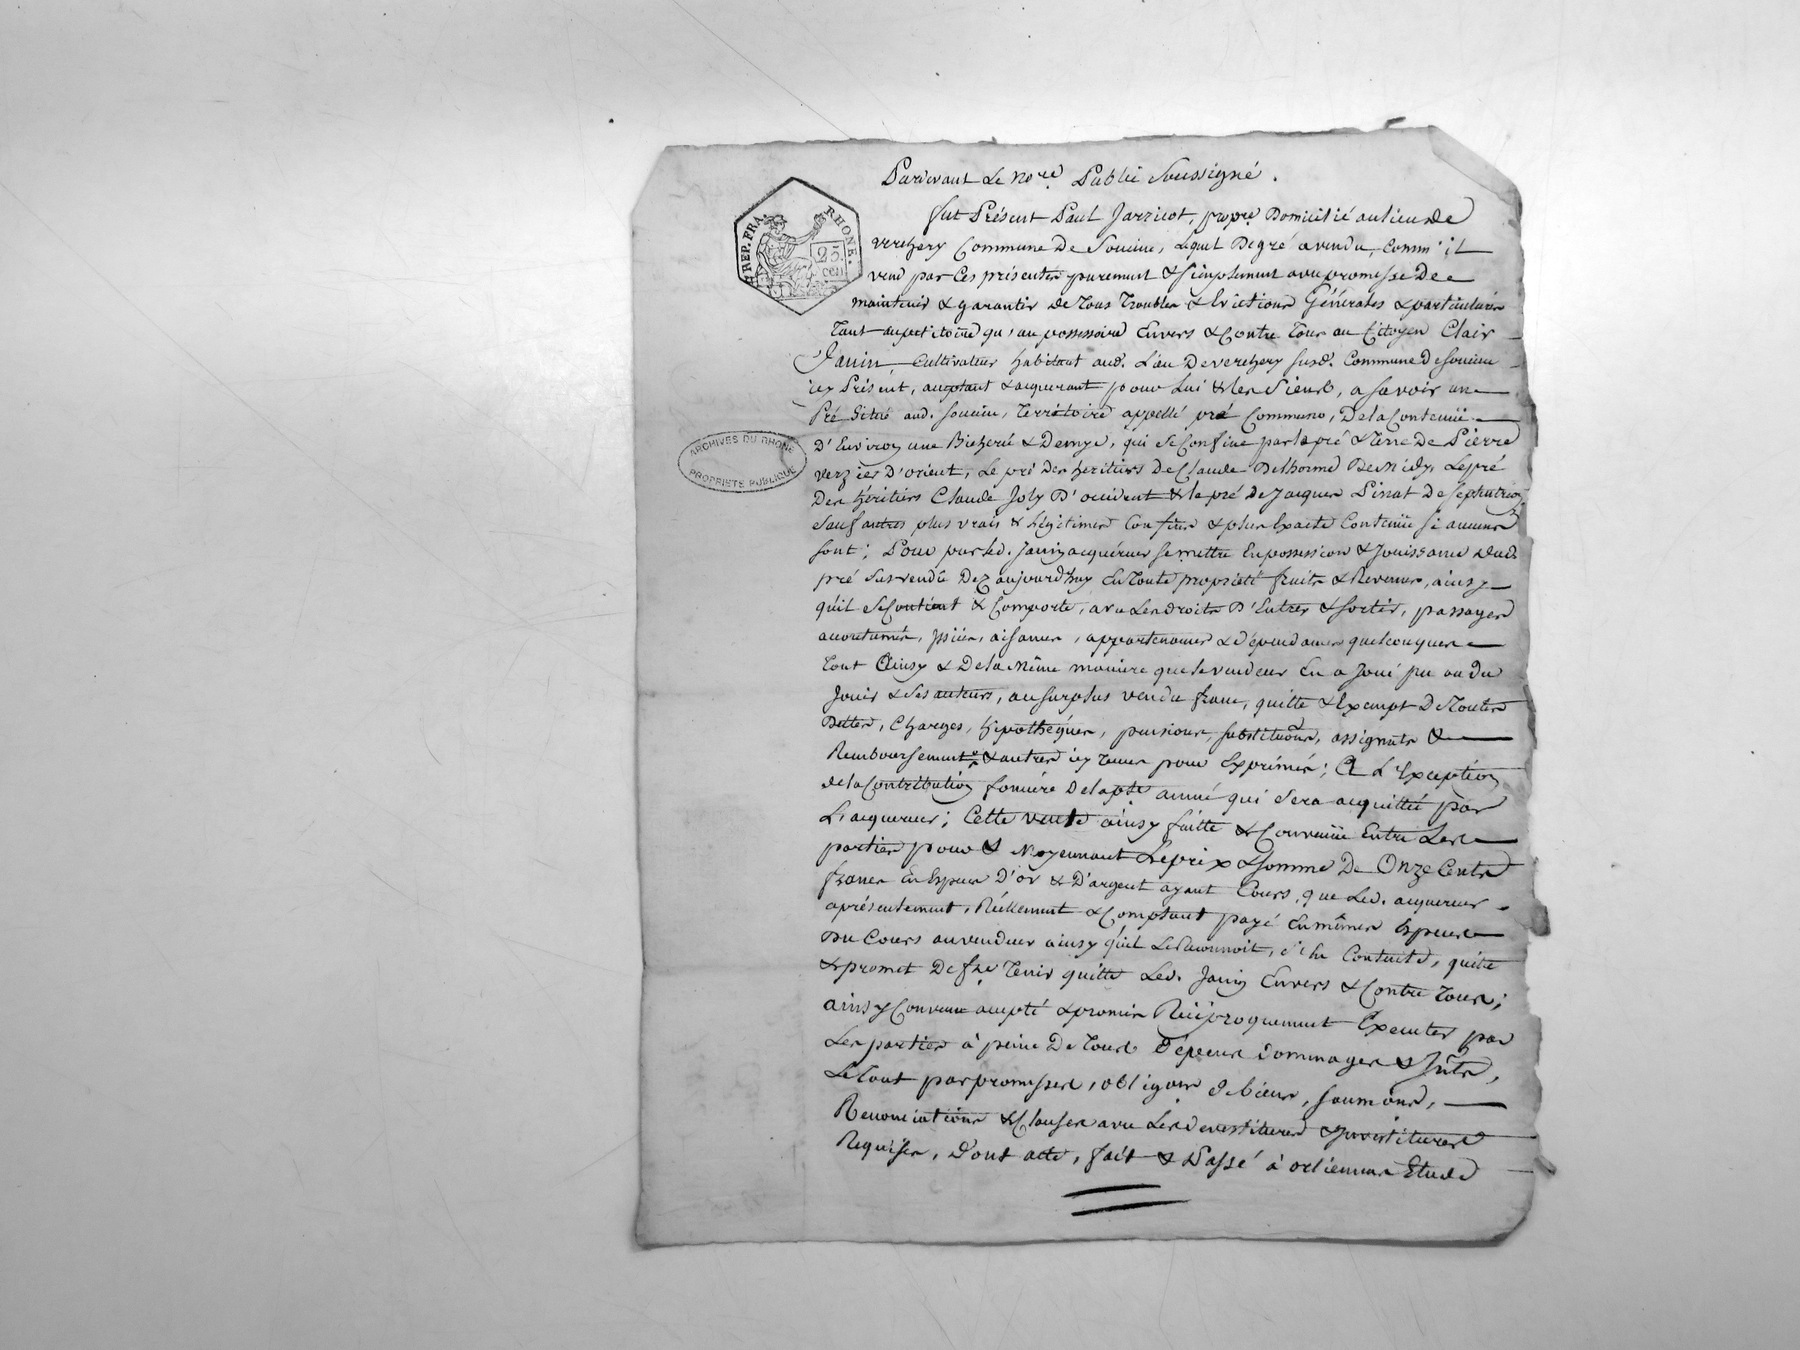 Pardevant Le no.re Public Soussigné.
REP. FRA. RHONE.
25 cen
fut Présent Paul Jarricot, propre Domicilié au lieu de
verchery Commune De Soucieu, Lequel De gré a vendu, comm' il
vend par Ces présentes purement & simplement avec promesse De
maintenir & garantir de Tous Troubles & Evictions Générales & particulières
Tant au petitoire qu'au possessoire Envers & Contre Tous au Citoyen Clair
Janin, Cultivateur habitant aud. Lieu De verchery susd. Commune De soucieu
icy Présent, acceptant & acquerant pour Lui & les Siens, a savoir un
Pré Situé aud. soucieu, Territoire appellé pré Communo, De la Contenüe
D'Environ une Bicherée & Demye, qui se Confine par le pré & Terre De Pierre
verzier D'orient, Le pré Des heritiers De Claude Delhorme De Midy, Le pré
Des héritiers Claude Joly D'occident & le pré De Jacques Pinat De septentrion
Sauf autres plus vrais & Légitimes Confins & plus Exacte Contenüe si aucuns
sont; Pour par led. Janin acquéreur se mettre En possession & Jouissance dud.
pré Sus vendû Dez aujourd'huy En Toute propriété fruits & Revenus, ainsy
qu'il se Contient & Comporte, avec Les droits D'Entrer & sortir, passages
accoutumés, jssües, aisances, appartenances & dépendances quelconques
Tout Ainsy & De la Même maniere que le vendeur En a Joui pu ou du
Jouir & ses auteurs, au surplus vendu franc, quitte & Exempt De Toutes
Dettes, Charges, hipothéques, pensions, substitu.ons, assignats &
Remboursements & autres icy Tenus pour Exprimés; A L'Exception
de la Contribution fonciere De la p.te année qui Sera acquittée par
L'acquereur; Cette vente ainsy faitte & Convenüe Entre Les
parties pour & Moyennant Le prix & somme De Onze Cents
francs En Especes D'or & D'argent ayant Cours, que Led. acquereur
a présentement, Réellement & Comptant payé En mêmes Especes
Du Cours au vendeur ainsy qu'il Le Reconnoit, s'En Contente, quitte
& promet De f.re Tenir quitte Led. Janin Envers & Contre Tous;
ainsy Convenu accepté & promis Réciproquement Executer par
Les parties à peine De Tous Dépens Dommages & Jnts,
Le Tout par promesses, oblig.ons de biens, soum.ons,
Renonciations & Clauses avec Les Devestitures & Jnvestitures
Requises, Dont acte, fait & Passé à orlienas Etude
ARCHIVES DU RHONE
PROPRIETE PUBLIQUE